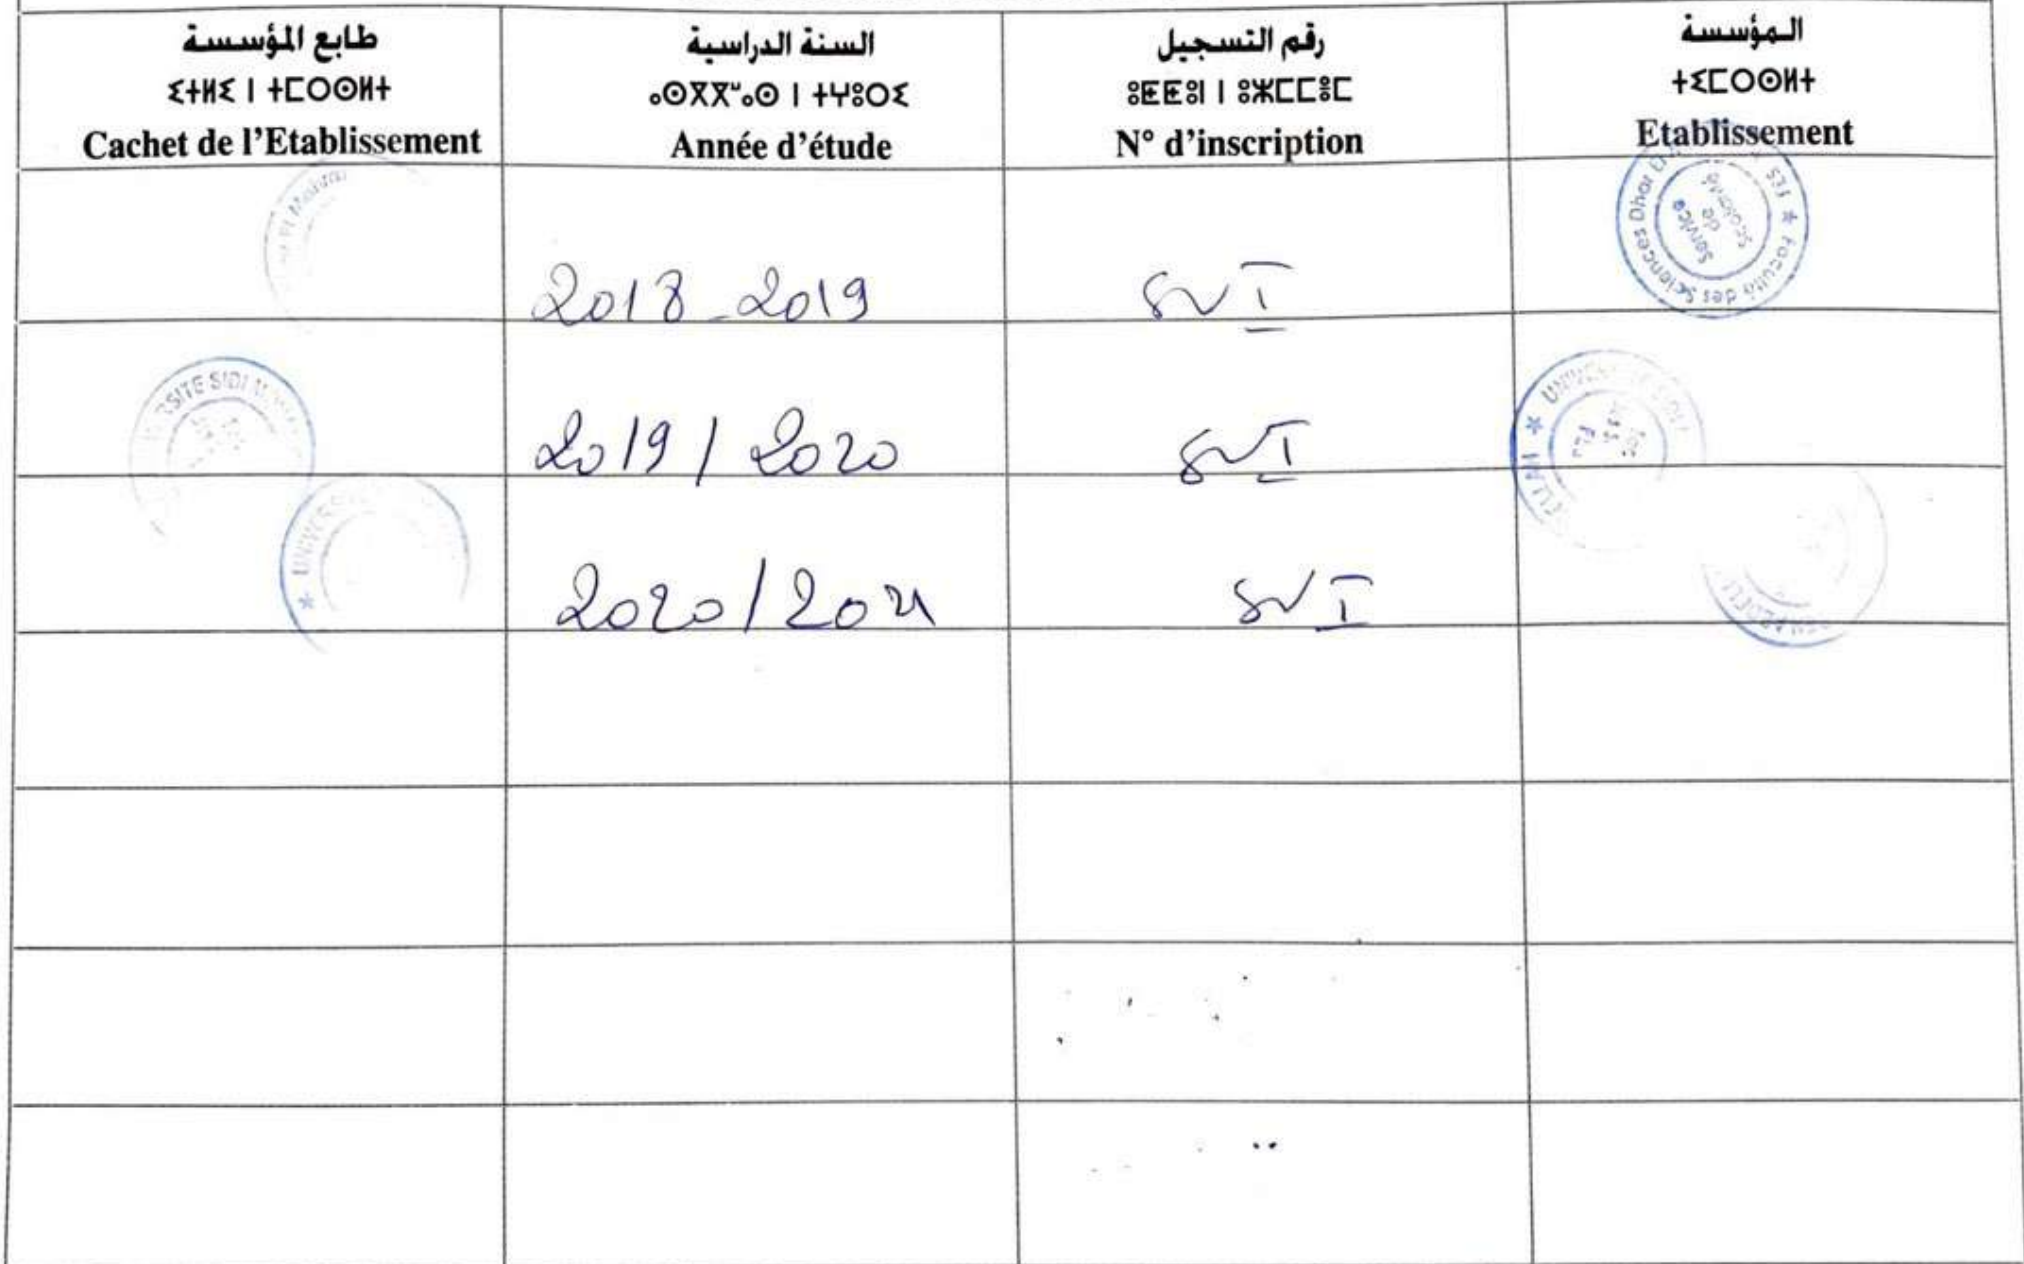 طابع المؤسسة
ⵉⵜⵍⵉ ⵏ ⵜⵎⵔⵙⵍⵜ
Cachet de l'Etablissement
السنة الدراسية
ⴰⵙⴳⴳⵯⴰⵙ ⵏ ⵜⵖⵓⵔⵉ
Année d'étude
رقم التسجيل
ⵓⵟⵟⵓⵏ ⵏ ⵓⵣⵎⵎⵓⵎ
N° d'inscription
المؤسسة
ⵜⵉⵎⵔⵙⵍⵜ
Etablissement
2018-2019
SVI
FES * Faculté des Sciences Dhar
Service
de
Scolarité
2019/2020
SVI
SITE SIDI
2020/2021
SVI